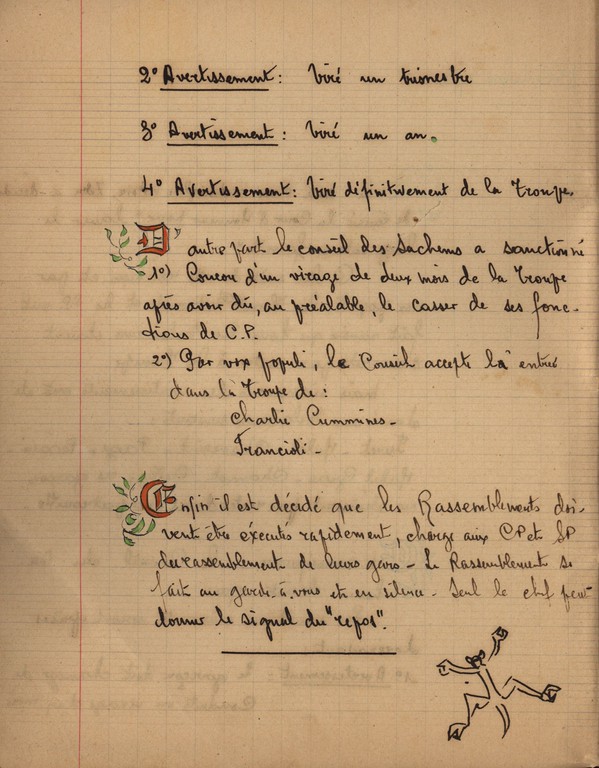 2° Avertissement : Viré un trimestre
3° Avertissement : Viré un an.
4° Avertissement : Viré définitivement de la Troupe.
D'autre part le conseil des Sachems a sanctionné
1°) Coucou d'un virage de deux mois de la Troupe
après avoir dû, au préalable, le casser de ses fonc-
tions de C.P.
2°) Par vox populi, le Conseil accepte la entrée
dans la Troupe de :
Charlie Cummines -
Francioli -
Enfin il est décidé que les Rassemblements doi-
vent être éxécutés rapidement, charge aux CP et SP
du rassemblement de leurs gars - Le Rassemblement se
fait au garde-à-vous et en silence - Seul le chef peut
donner le signal du "repos".